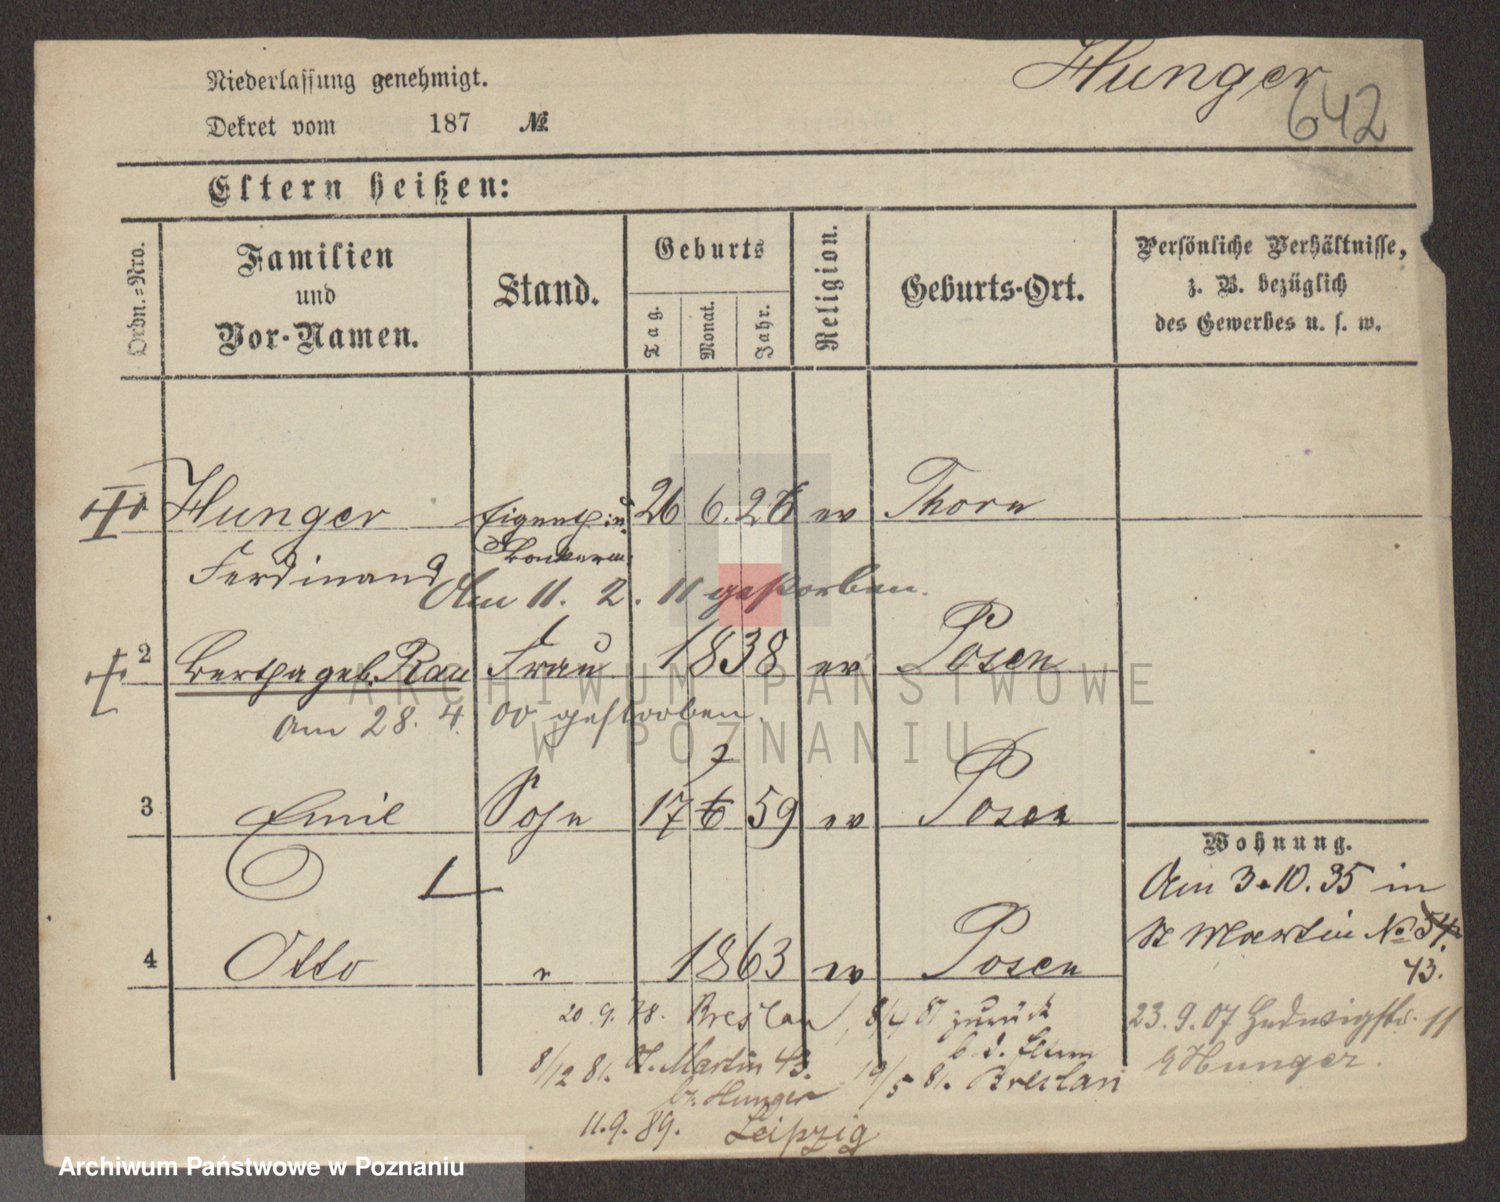 Hunger
642
Niederlassung genehmigt.
Dekret vom 187 №
Eltern heißen:
Ordn.=Nro.
Familien
und
Vor-Namen.
Stand.
Geburts
Tag.
Monat.
Jahr.
Religion.
Geburts-Ort.
Persönliche Verhältnisse,
z. B. bezüglich
des Gewerbes u. s. w.
Hunger 26 6. 26 ev Thorn
Ferdinand
Am 11. 2. 11 gestorben.
2 Bertha geb. Rau Frau 1838 ev Posen
Am 28. 4. 00 gestorben.
7
3 Emil Sohn 17 6 59 ev Posen
4 Otto " 1863 ev Posen
Wohnung.
Am 3.10.35 in
St Martin No 54.
43.
23.9.07 Hedwigstr. 11
Hunger.
20.9.78. Breslau, 8/4 81 zurück
b. d. Eltern
8/12 81. St. Martin 43. 19/5 81. Breslau
bei Hunger
11.9.89. Leipzig
ARCHIWUM PAŃSTWOWE
W POZNANIU
Archiwum Państwowe w Poznaniu